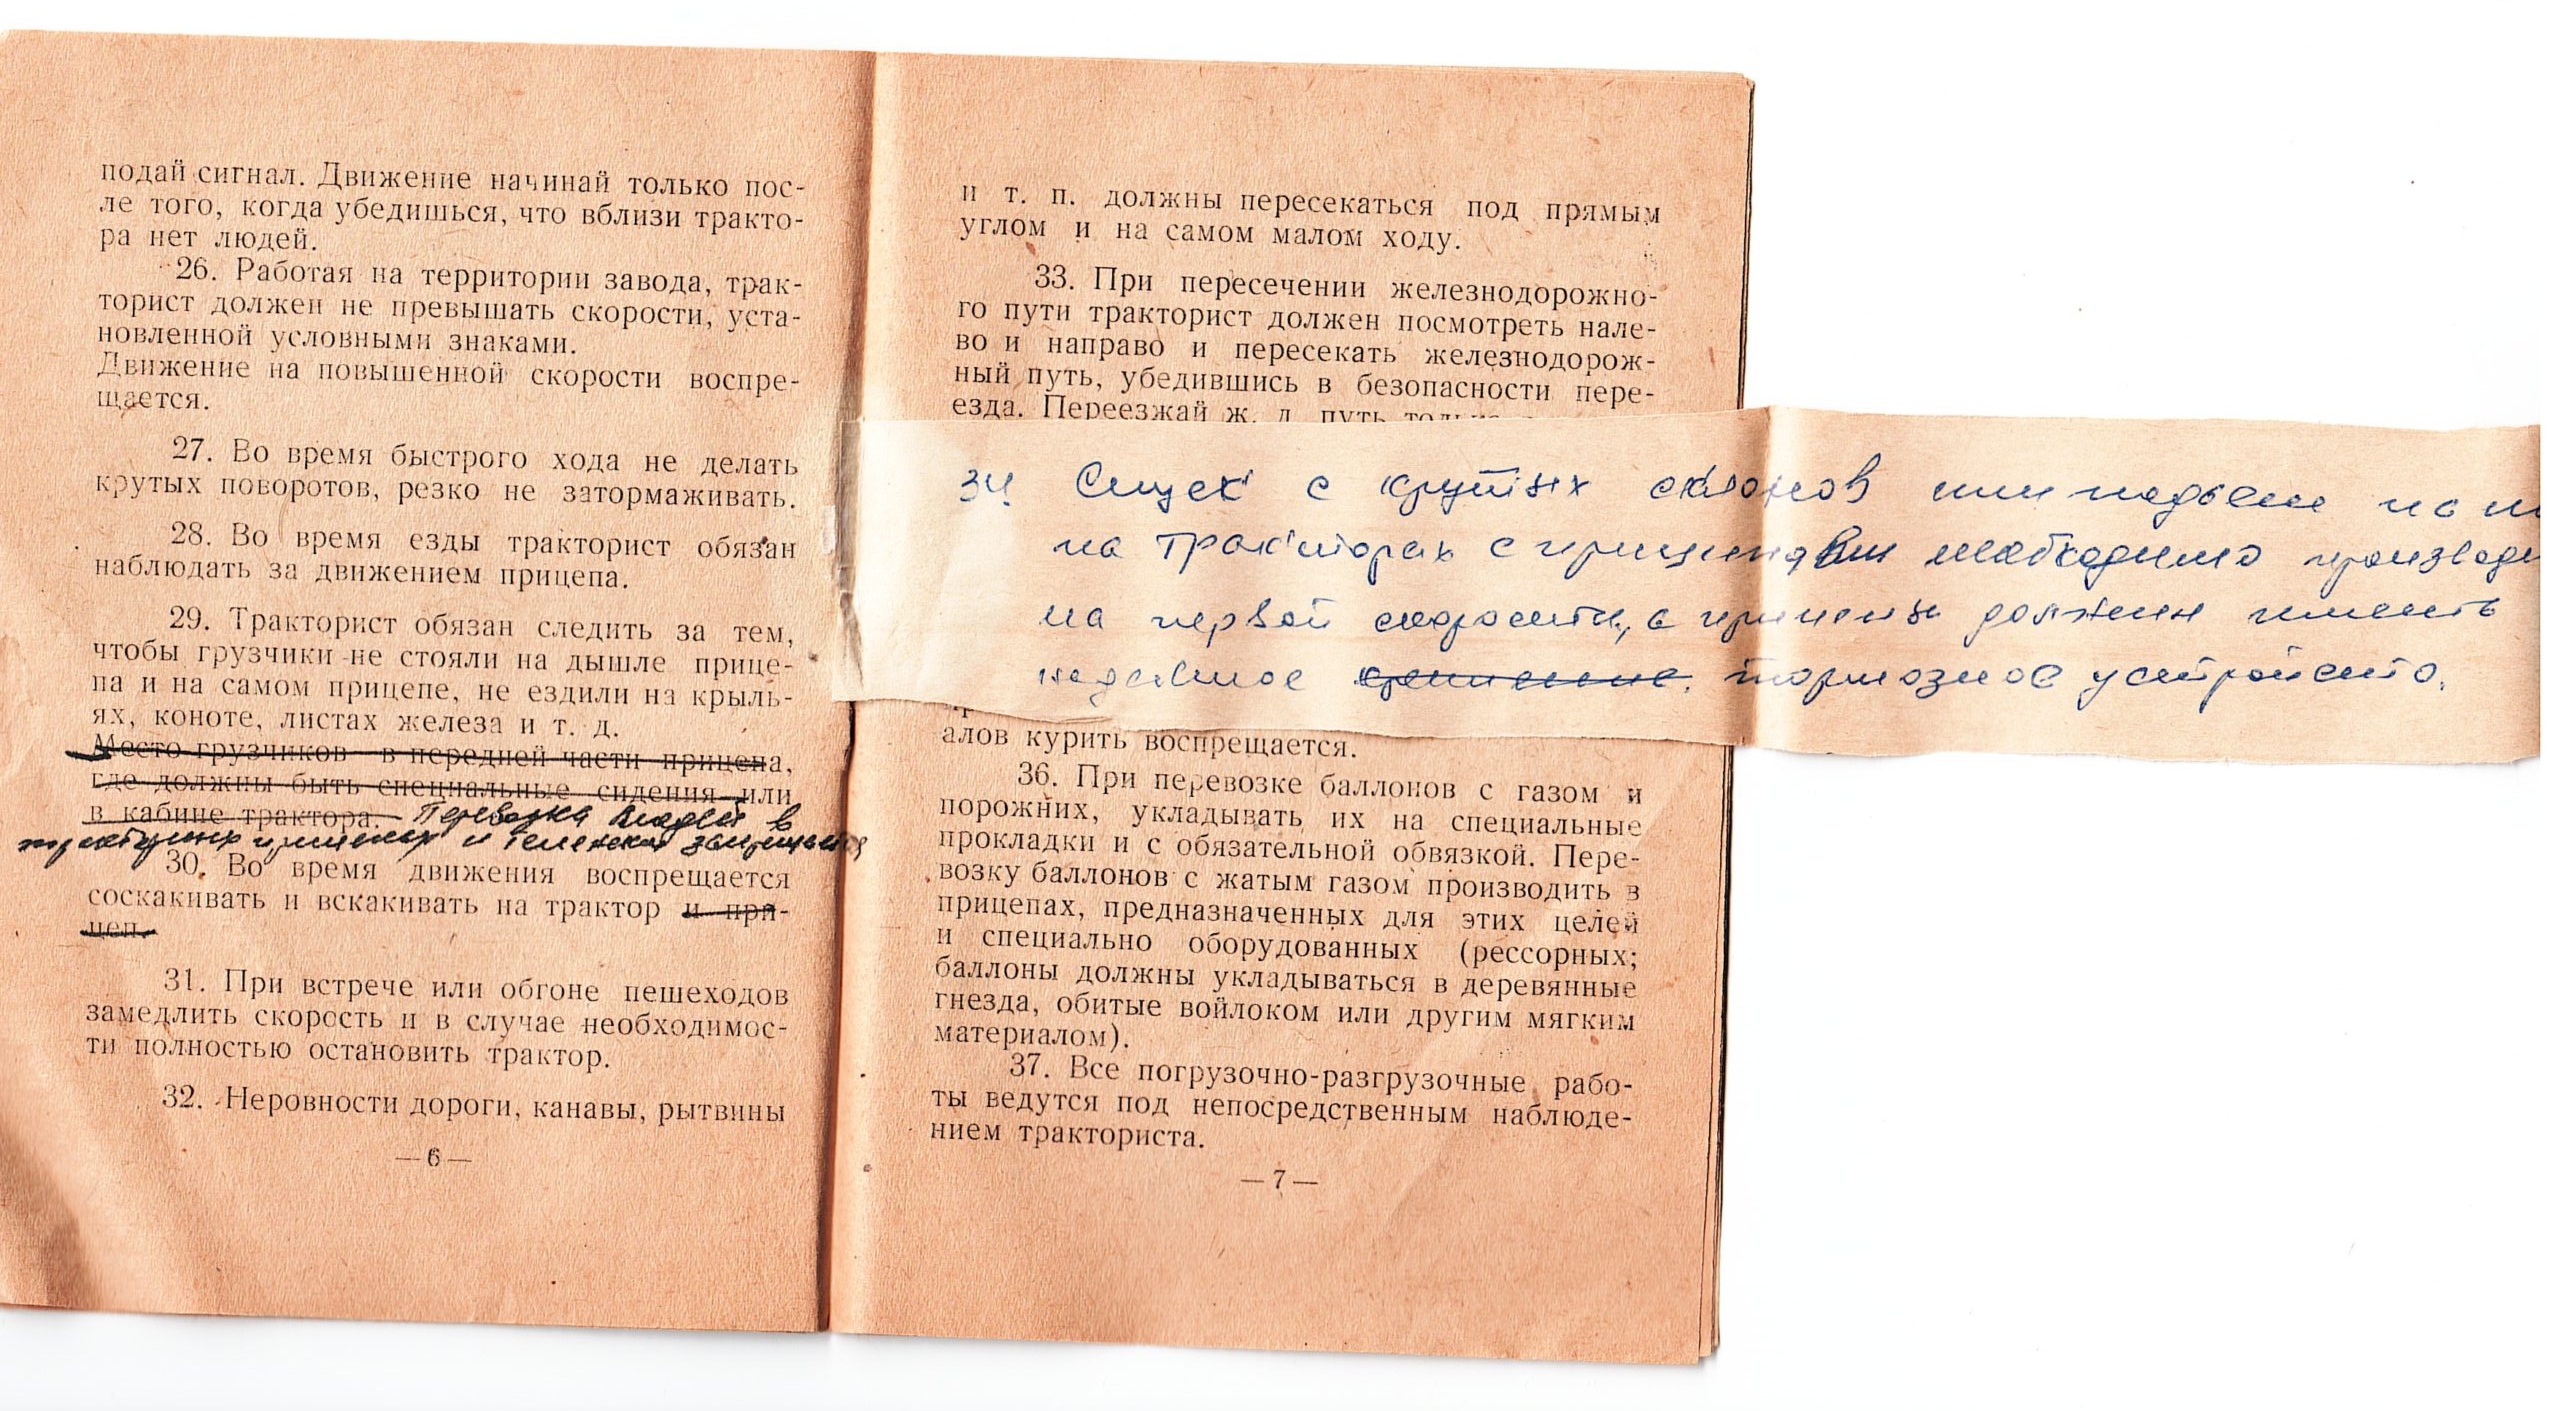 подай сигнал. Движение начинай только пос-
ле того, когда убедишься, что вблизи тракто-
ра нет людей.
26. Работая на территории завода, трак-
торист должен не превышать скорости, уста-
новленной условными знаками.
Движение на повышенной скорости воспре-
щается.
27. Во время быстрого хода не делать
крутых поворотов, резко не затормаживать.
28. Во время езды тракторист обязан
наблюдать за движением прицепа.
29. Тракторист обязан следить за тем,
чтобы грузчики не стояли на дышле прице-
па и на самом прицепе, не ездили на крыль-
ях, капоте, листах железа и т. д.
Место грузчиков в передней части прицепа,
где должны быть специальные сидения или
в кабине трактора. Перевозка людей в
тракторных прицепах и тележках запрещается
30. Во время движения воспрещается
соскакивать и вскакивать на трактор и при-
цеп.
31. При встрече или обгоне пешеходов
замедлить скорость и в случае необходимос-
ти полностью остановить трактор.
32. Неровности дороги, канавы, рытвины
—6—
и т. п. должны пересекаться под прямым
углом и на самом малом ходу.
33. При пересечении железнодорожно-
го пути тракторист должен посмотреть нале-
во и направо и пересекать железнодорож-
ный путь, убедившись в безопасности пере-
езда. Переезжай ж. д. путь только
34 Спуск с крутых склонов или подъем на
на тракторах с прицепами необходимо производи
на первой скорости, а прицепы должен иметь
надежное тормозное устройство.
алов курить воспрещается.
36. При перевозке баллонов с газом и
порожних, укладывать их на специальные
прокладки и с обязательной обвязкой. Пере-
возку баллонов с жатым газом производить в
прицепах, предназначенных для этих целей
и специально оборудованных (рессорных;
баллоны должны укладываться в деревянные
гнезда, обитые войлоком или другим мягким
материалом).
37. Все погрузочно-разгрузочные рабо-
ты ведутся под непосредственным наблюде-
нием тракториста.
—7—